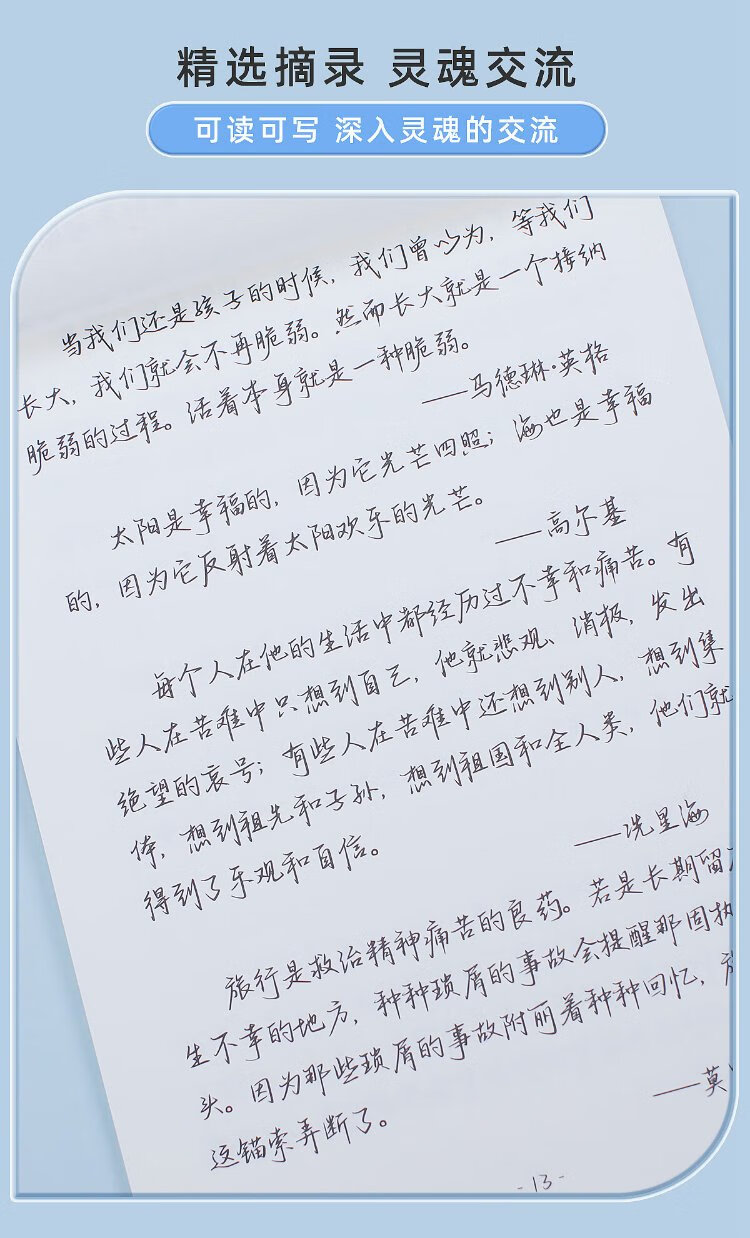 精选摘录 灵魂交流
可读可写 深入灵魂的交流
当我们还是孩子的时候，我们曾以为，等我们
长大，我们就会不再脆弱。然而长大就是一个接纳
脆弱的过程。活着本身就是一种脆弱。
——马德琳·英格
太阳是幸福的，因为它光芒四照；海也是幸福
的，因为它反射着太阳欢乐的光芒。
——高尔基
每个人在他的生活中都经历过不幸和痛苦。有
些人在苦难中只想到自己，他就悲观、消极，发出
绝望的哀号；有些人在苦难中还想到别人，想到集
体，想到祖先和子孙，想到祖国和全人类，他们就
得到了乐观和自信。
——冼星海
旅行是救治精神痛苦的良药。若是长期留
生不幸的地方，种种琐屑的事故会提醒那固执
头。因为那些琐屑的事故附丽着种种回忆，
这锚索弄断了。
——莫
-13-